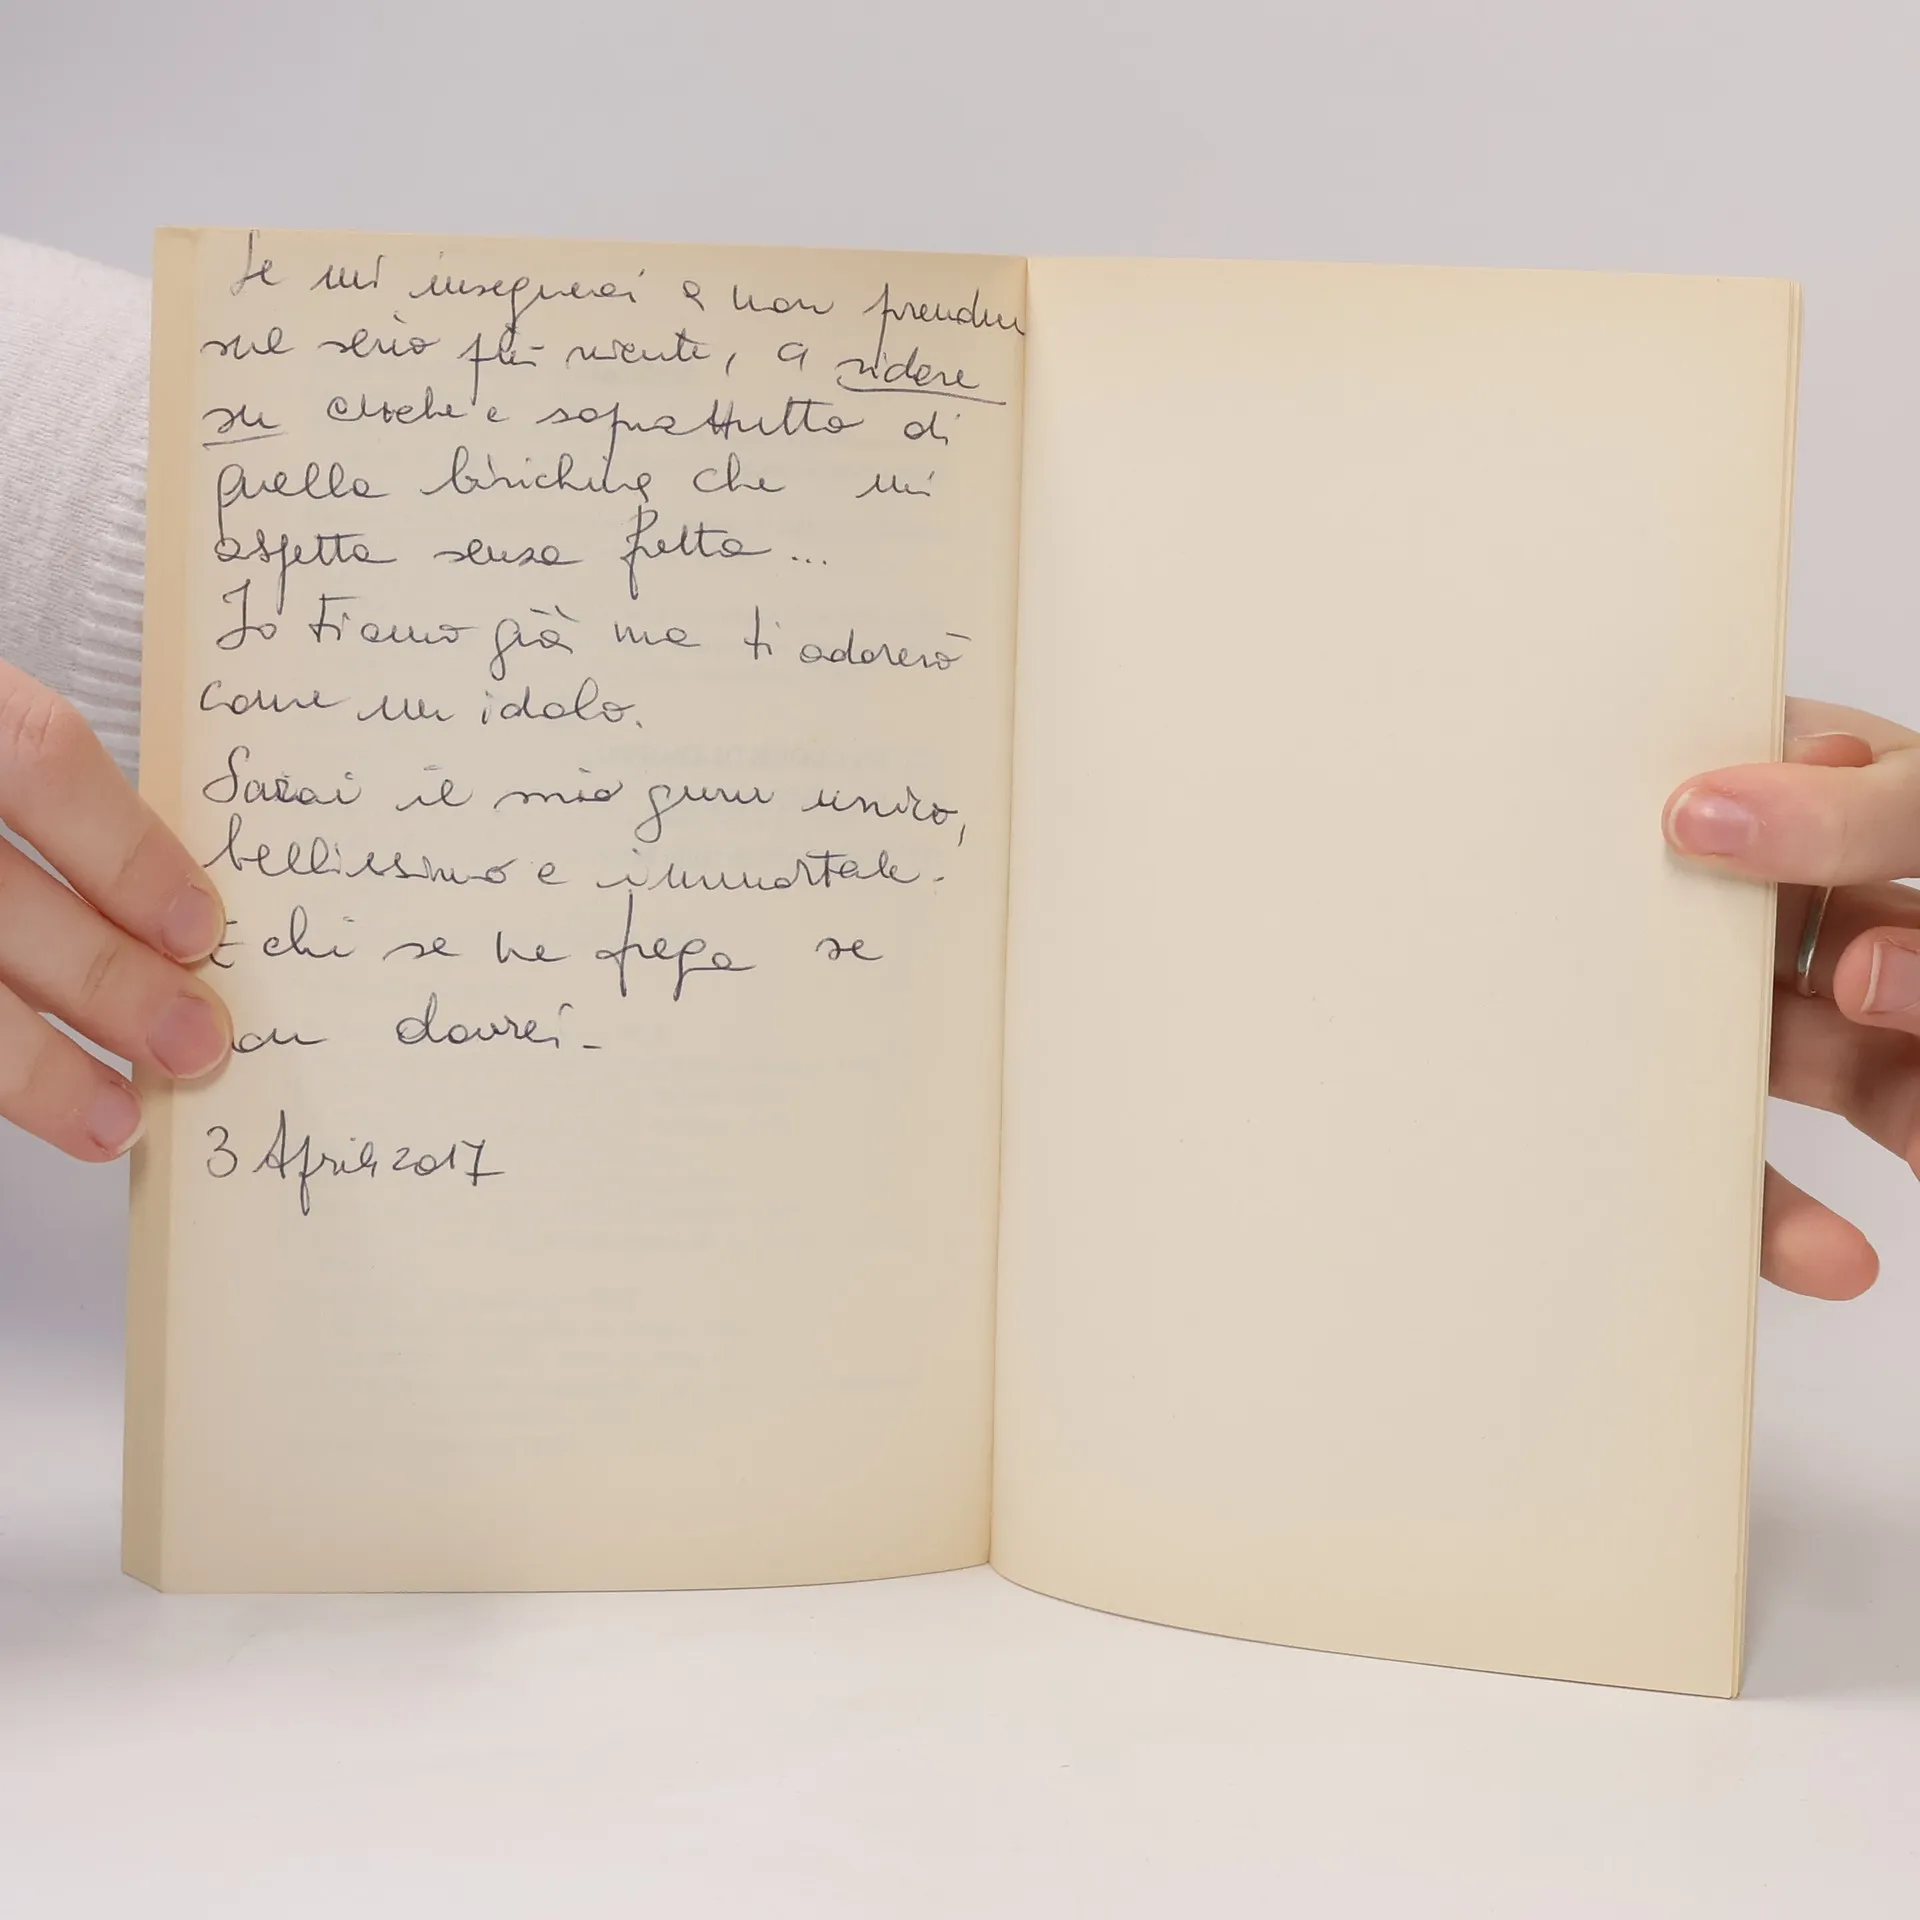 Se mi insegnerai a non prender
sul serio più niente, a ridere
su anche e soprattutto di
quella birichina che mi
aspetta senza fretta...
Io ti amo già ma ti adorerò
come un idolo.
Sarai il mio guru unico,
bellissimo e immortale.
E chi se ne frega se
non dovrei-
3 Aprile 2017